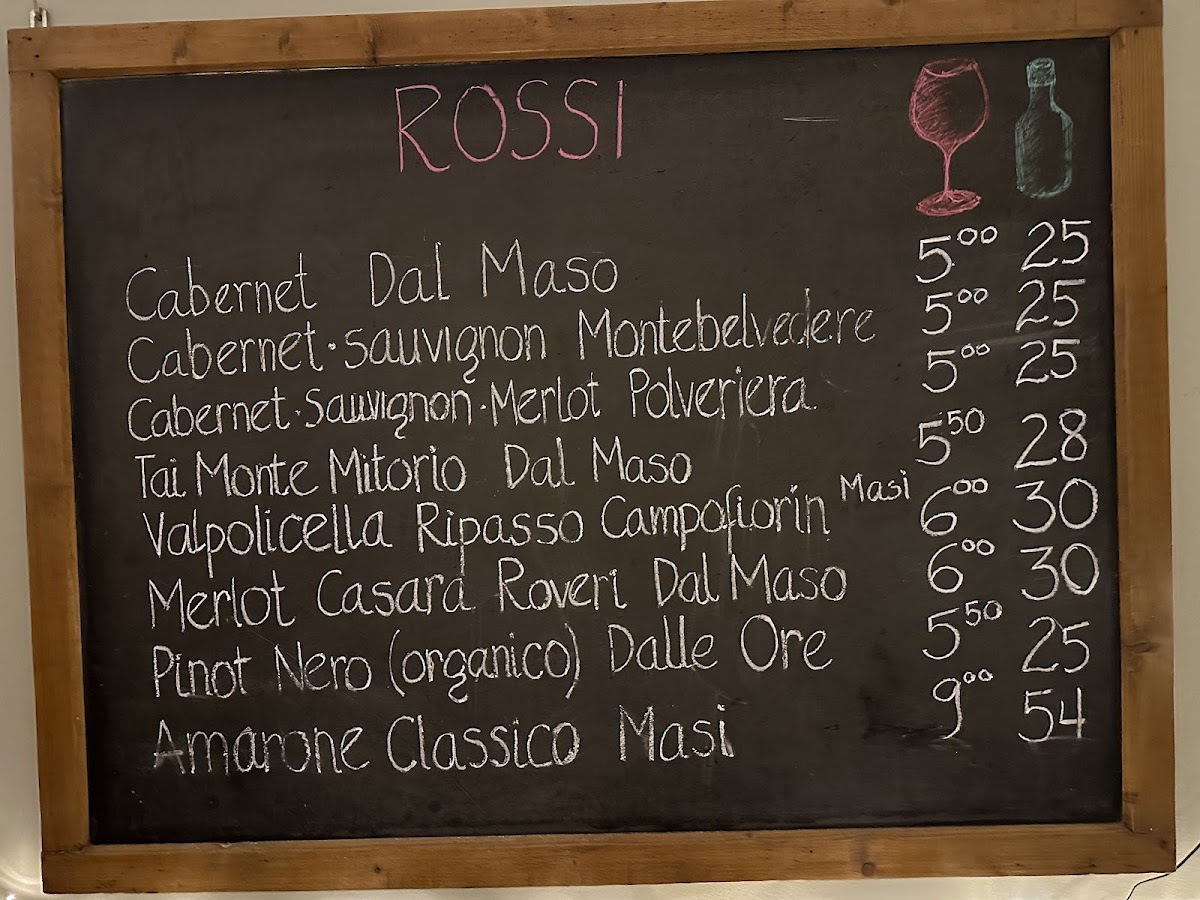 ROSSI
Cabernet Dal Maso 5⁰⁰ 25
Cabernet·Sauvignon Montebelvedere 5⁰⁰ 25
Cabernet·Sauvignon·Merlot Polveriera 5⁰⁰ 25
Tai Monte Mitorio Dal Maso 5⁵⁰ 28
Valpolicella Ripasso Campofiorin Masi 6⁰⁰ 30
Merlot Casara Roveri Dal Maso 6⁰⁰ 30
Pinot Nero (organico) Dalle Ore 5⁵⁰ 25
Amarone Classico Masi 9⁰⁰ 54